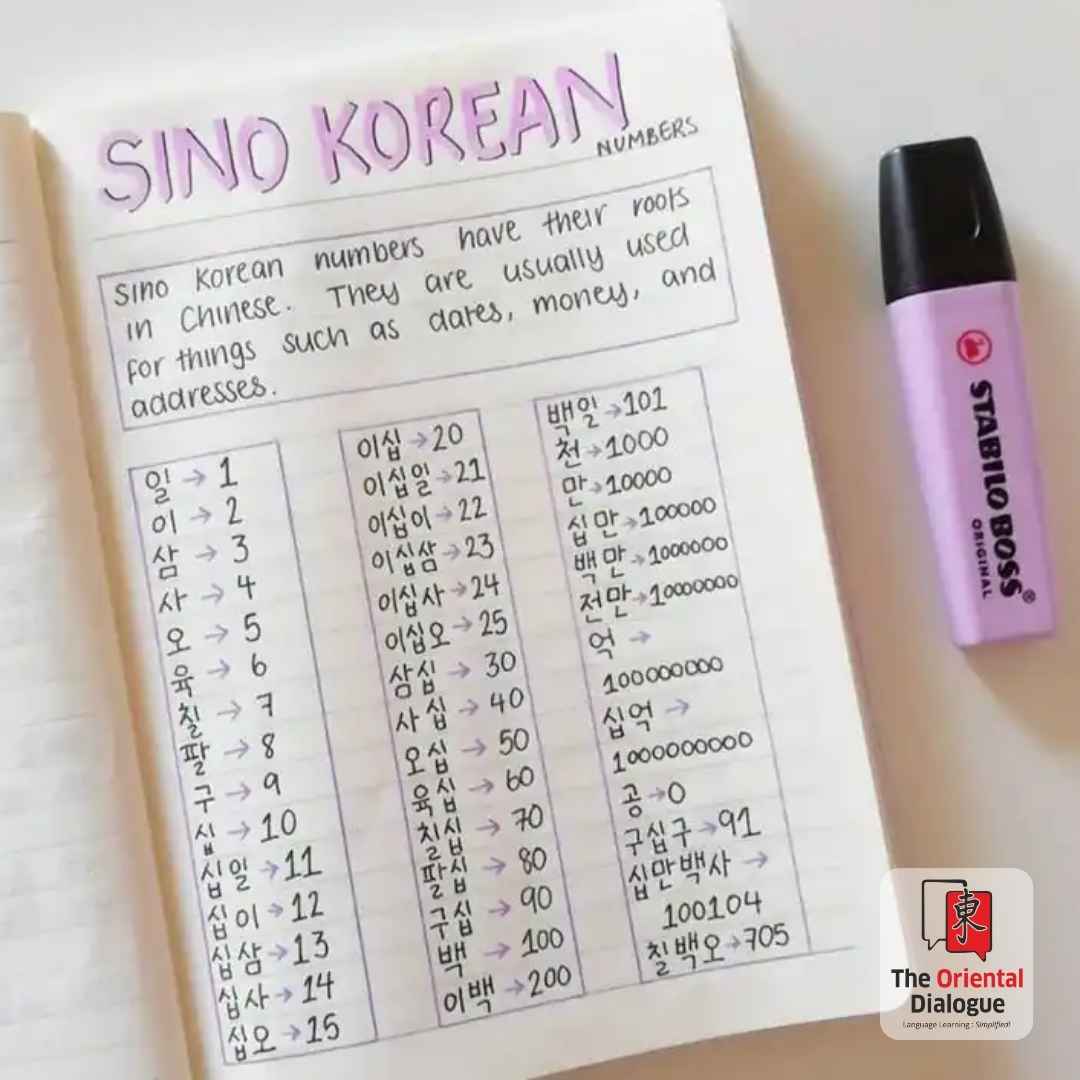 SINO KOREAN
NUMBERS
Sino Korean numbers have their roots
in Chinese. They are usually used
for things such as dates, money, and
addresses.
일 → 1
이 → 2
삼 → 3
사 → 4
오 → 5
육 → 6
칠 → 7
팔 → 8
구 → 9
십 → 10
십일 → 11
십이 → 12
십삼 → 13
십사 → 14
십오 → 15
이십 → 20
이십일 → 21
이십이 → 22
이십삼 → 23
이십사 → 24
이십오 → 25
삼십 → 30
사십 → 40
오십 → 50
육십 → 60
칠십 → 70
팔십 → 80
구십 → 90
백 → 100
이백 → 200
백일 → 101
천 → 1000
만 → 10000
십만 → 100000
백만 → 1000000
천만 → 10000000
억 →
100000000
십억 →
1000000000
공 → 0
구십구 → 91
십만백사 →
100104
칠백오 → 705
STABILO BOSS®
ORIGINAL
東
The Oriental
Dialogue
Language Learning : Simplified!